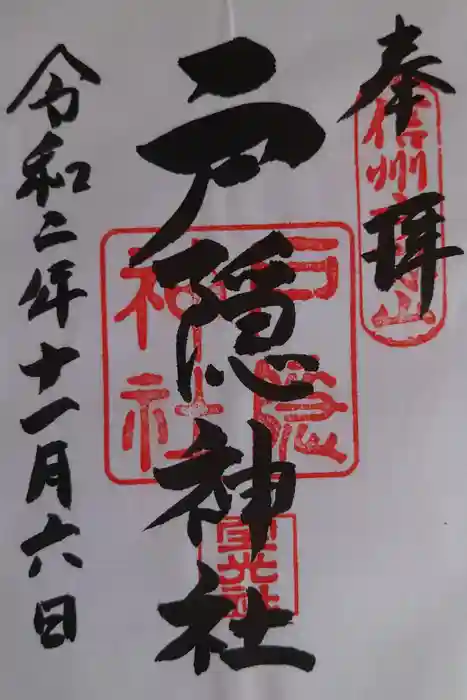 奉拝
信州戸隠山
戸隠神社
戸隠
神社
宝光社
令和二年十一月六日